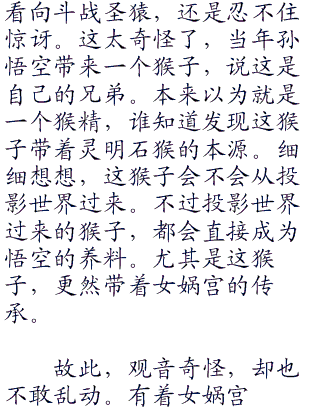 看向斗战圣猿，还是忍不住
惊讶。这太奇怪了，当年孙
悟空带来一个猴子，说这是
自己的兄弟。本来以为就是
一个猴精，谁知道发现这猴
子带着灵明石猴的本源。细
细想想，这猴子会不会从投
影世界过来。不过投影世界
过来的猴子，都会直接成为
悟空的养料。尤其是这猴
子，更然带着女娲宫的传
承。
故此，观音奇怪，却也
不敢乱动。有着女娲宫